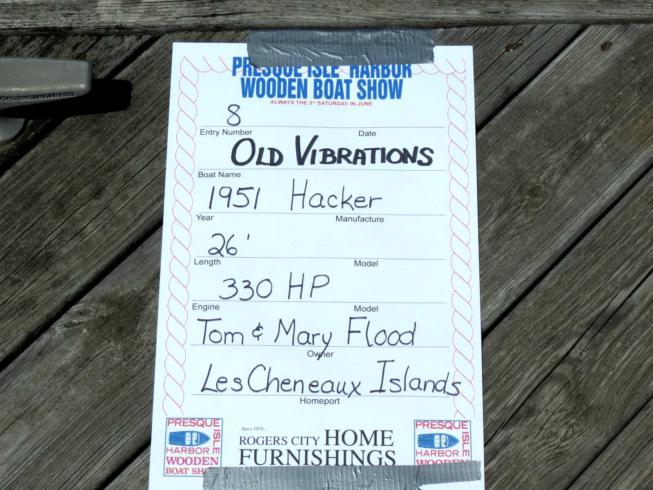 PRESQUE ISLE HARBOR
WOODEN BOAT SHOW
ALWAYS THE 3rd SATURDAY IN JUNE
8
Entry Number Date
OLD VIBRATIONS
Boat Name
1951 Hacker
Year Manufacture
26'
Length Model
330 HP
Engine Model
Tom & Mary Flood
Owner
Les Cheneaux Islands
Homeport
Since 1974...
ROGERS CITY HOME
FURNISHINGS
PRESQUE ISLE
HARBOR
WOODEN
BOAT SHOW
PRESQUE ISLE
HARBOR
WOODEN